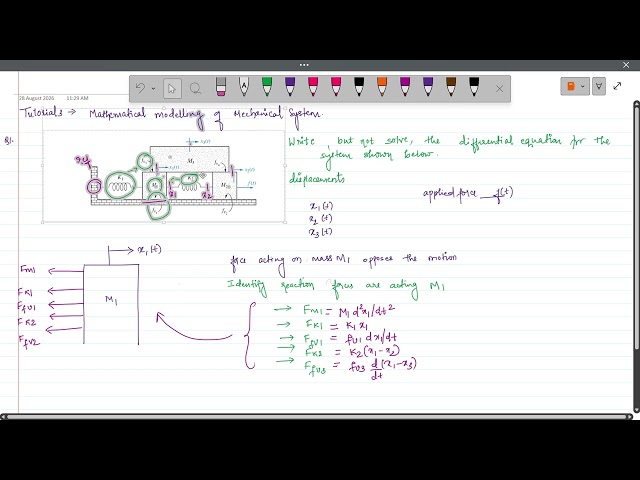 28 August 2026 11:29 AM
Tutorial 3 → Mathematical modelling of Mechanical System.
Q1.
Write, but not solve, the differential equation for the
system shown below.
displacements
applied force → f(t)
x₁(t)
x₂(t)
x₃(t)
K₁
M₃
f(t)
→ x₁(t)
force acting on mass M₁ opposes the motion
Identify reaction forces are acting M₁
M₁
FM1
FK1
Ffv1
FK2
Ffv2
→ FM1 = M₁ d²x₁/dt²
→ FK1 = K₁ x₁
→ Ffv1 = fv1 dx₁/dt
→ FK2 = K₂ (x₁-x₂)
→ Ffv3 = fv3 d/dt (x₁-x₃)